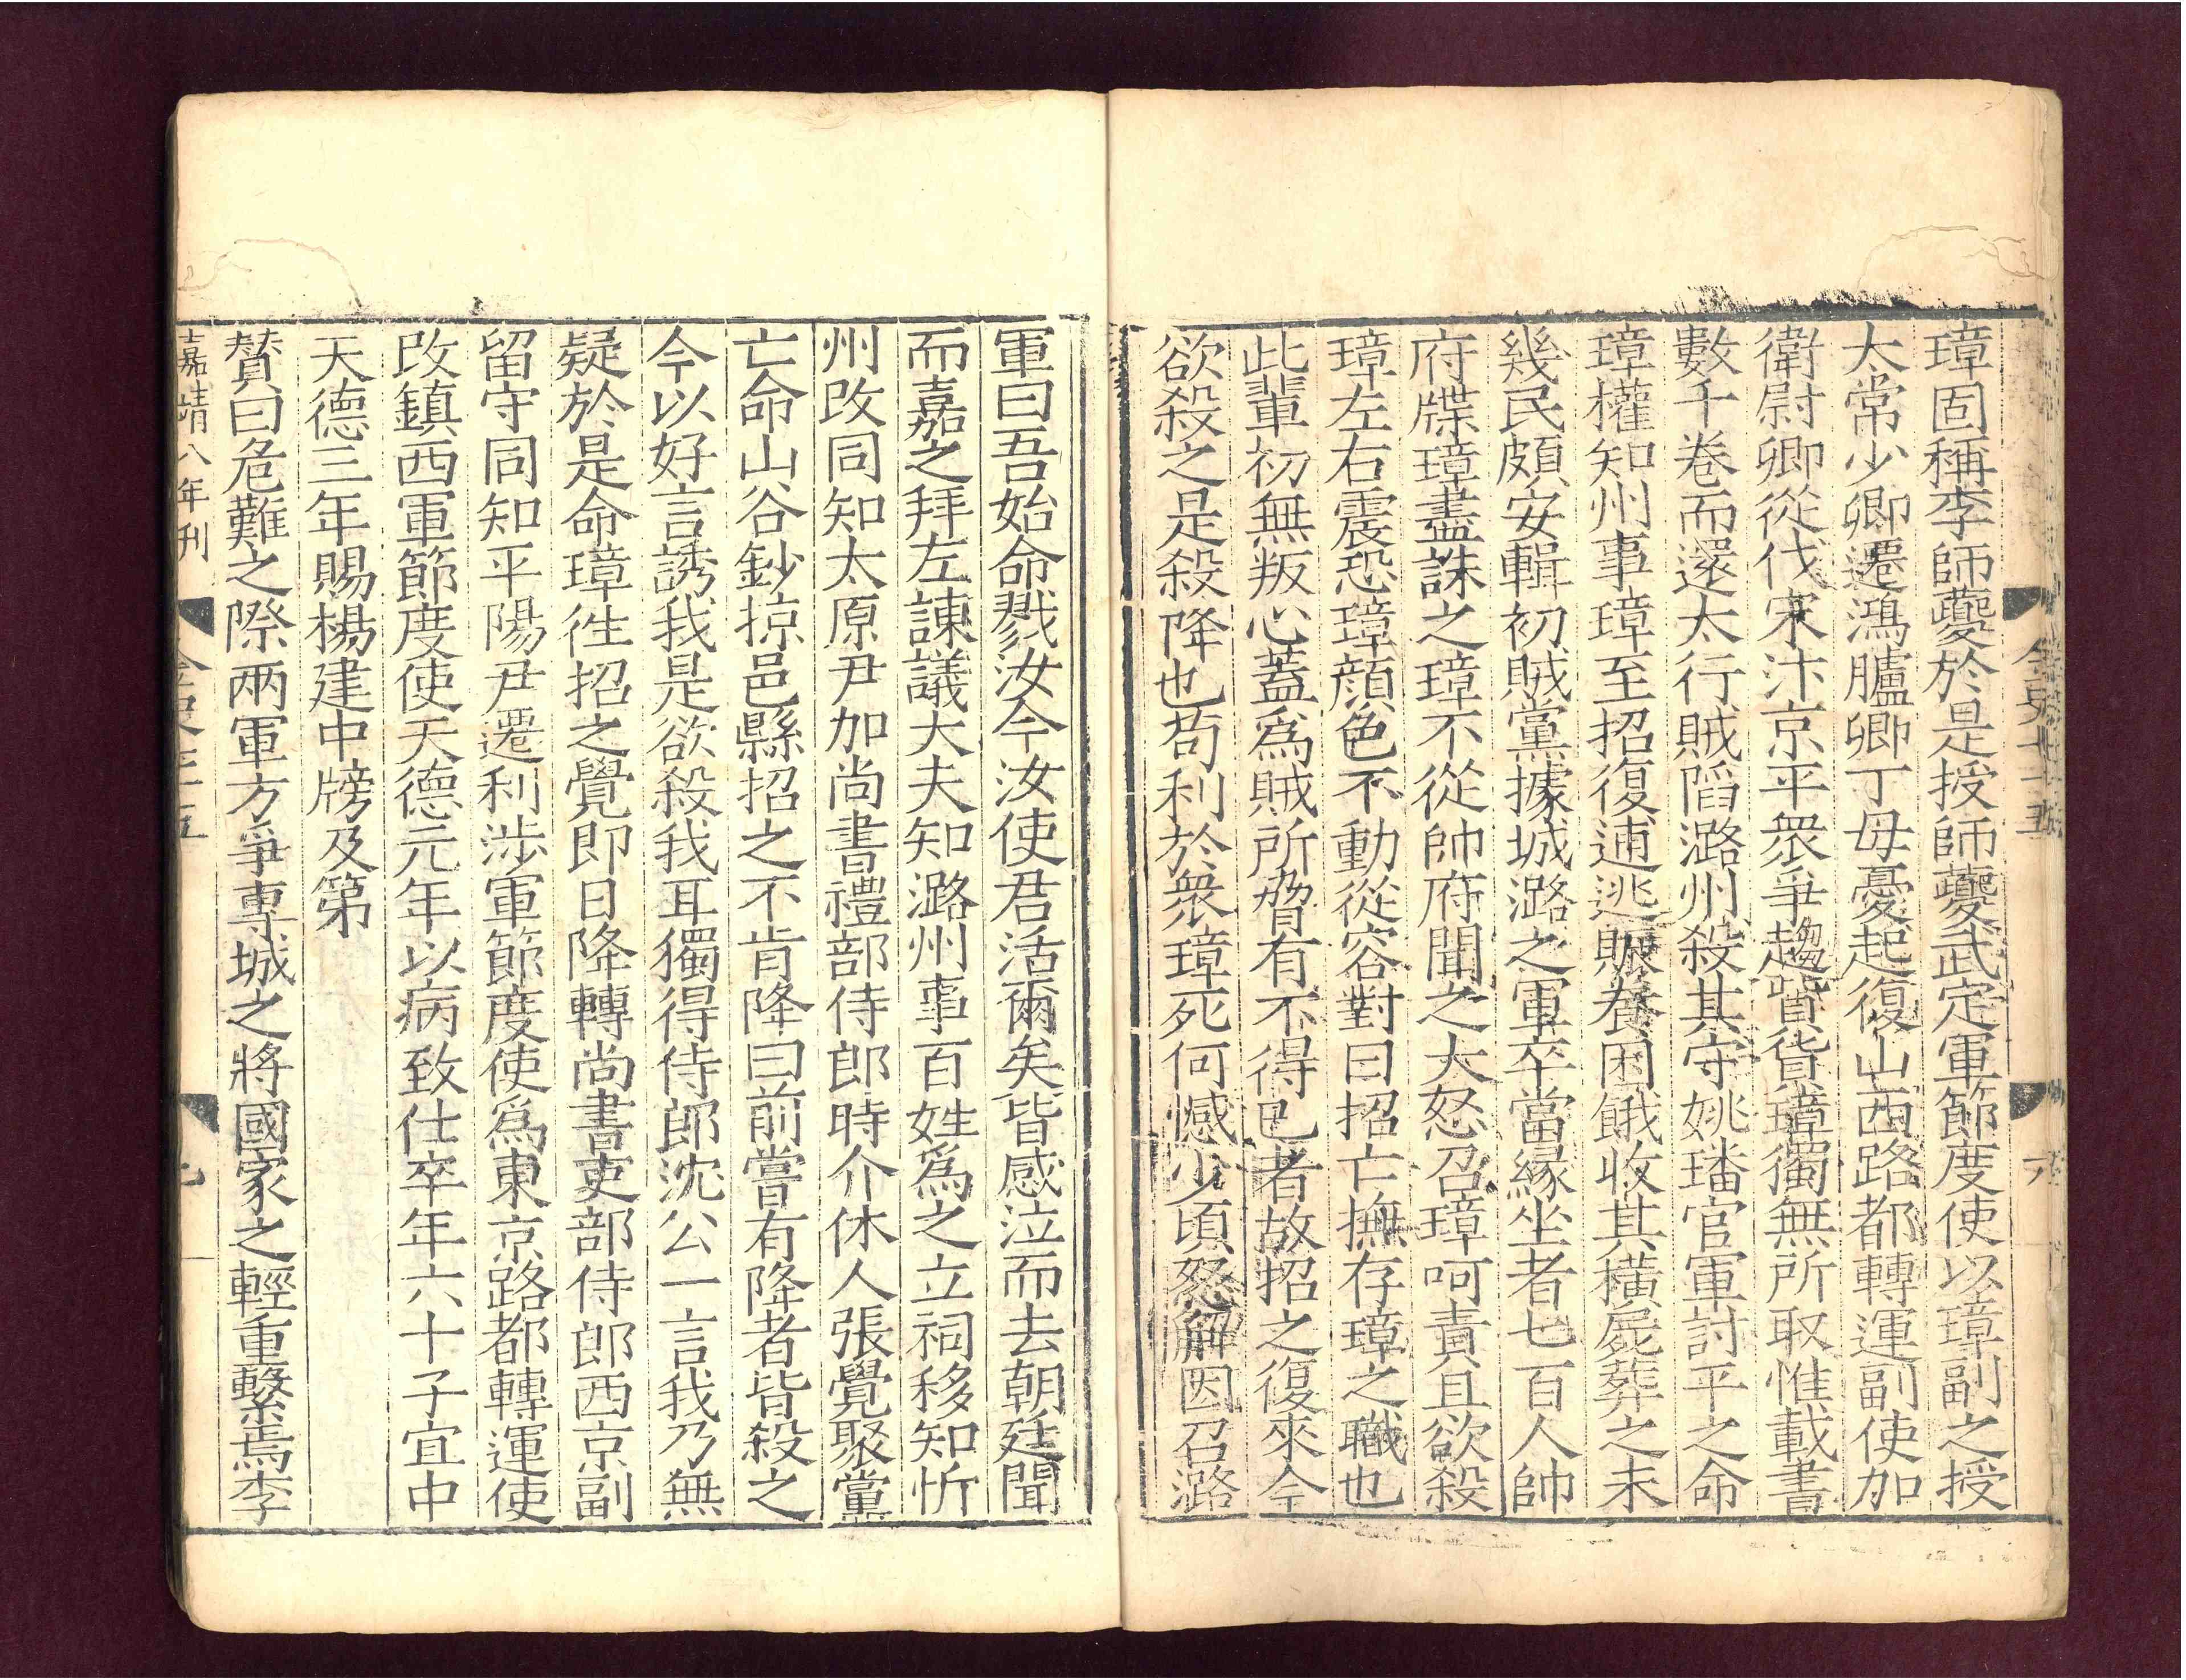 璋固稱李師夔於是授師夔武定軍節度使以璋副之授
太常少卿遷鴻臚卿丁母憂起復山西路都轉運副使加
衛尉卿從伐宋汴京平衆爭趨貲貨璋獨無所取惟載書
數千卷而還太行賊陷潞州殺其守姚璠官軍討平之命
璋權知州事璋至招復逋逃賑養困餓收其橫屍葬之未
幾民頗安輯初賊黨據城潞之軍卒當緣坐者七百人帥
府牒璋盡誅之璋不從帥府聞之大怒召璋呵責且欲殺
璋左右震恐璋顔色不動從容對曰招亡撫存璋之職也
此輩初無叛心蓋爲賊所脅有不得已者故招之復來今
欲殺之是殺降也苟利於衆璋死何憾少頃怒解因召潞
軍曰吾始命戮汝今汝使君活爾矣皆感泣而去朝廷聞
而嘉之拜左諫議大夫知潞州事百姓爲之立祠移知忻
州改同知太原尹加尚書禮部侍郎時介休人張覺聚黨
亡命山谷鈔掠邑縣招之不肯降曰前嘗有降者皆殺之
今以好言誘我是欲殺我耳獨得侍郎沈公一言我乃無
疑於是命璋徃招之覺即日降轉尚書吏部侍郎西京副
留守同知平陽尹遷利涉軍節度使爲東京路都轉運使
改鎮西軍節度使天德元年以病致仕卒年六十子宜中
天德三年賜楊建中牓及第
賛曰危難之際兩軍方爭專城之將國家之輕重繫焉李
嘉靖八年刊